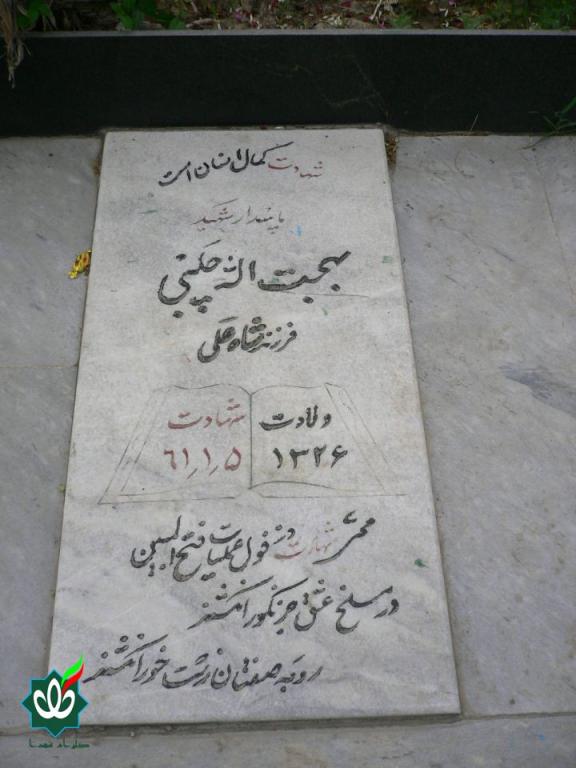 شهادت کمال انسان است
پاسدار شهید
بهجت اله چگینی
فرزند شاه علی
ولادت شهادت
۱۳۲۶ ۶۱٫۱٫۵
محل شهادت دزفول عملیات فتح المبین
در مسلخ عشق جز نکو را نکشند
روبه صفتان زشت خو را نکشند